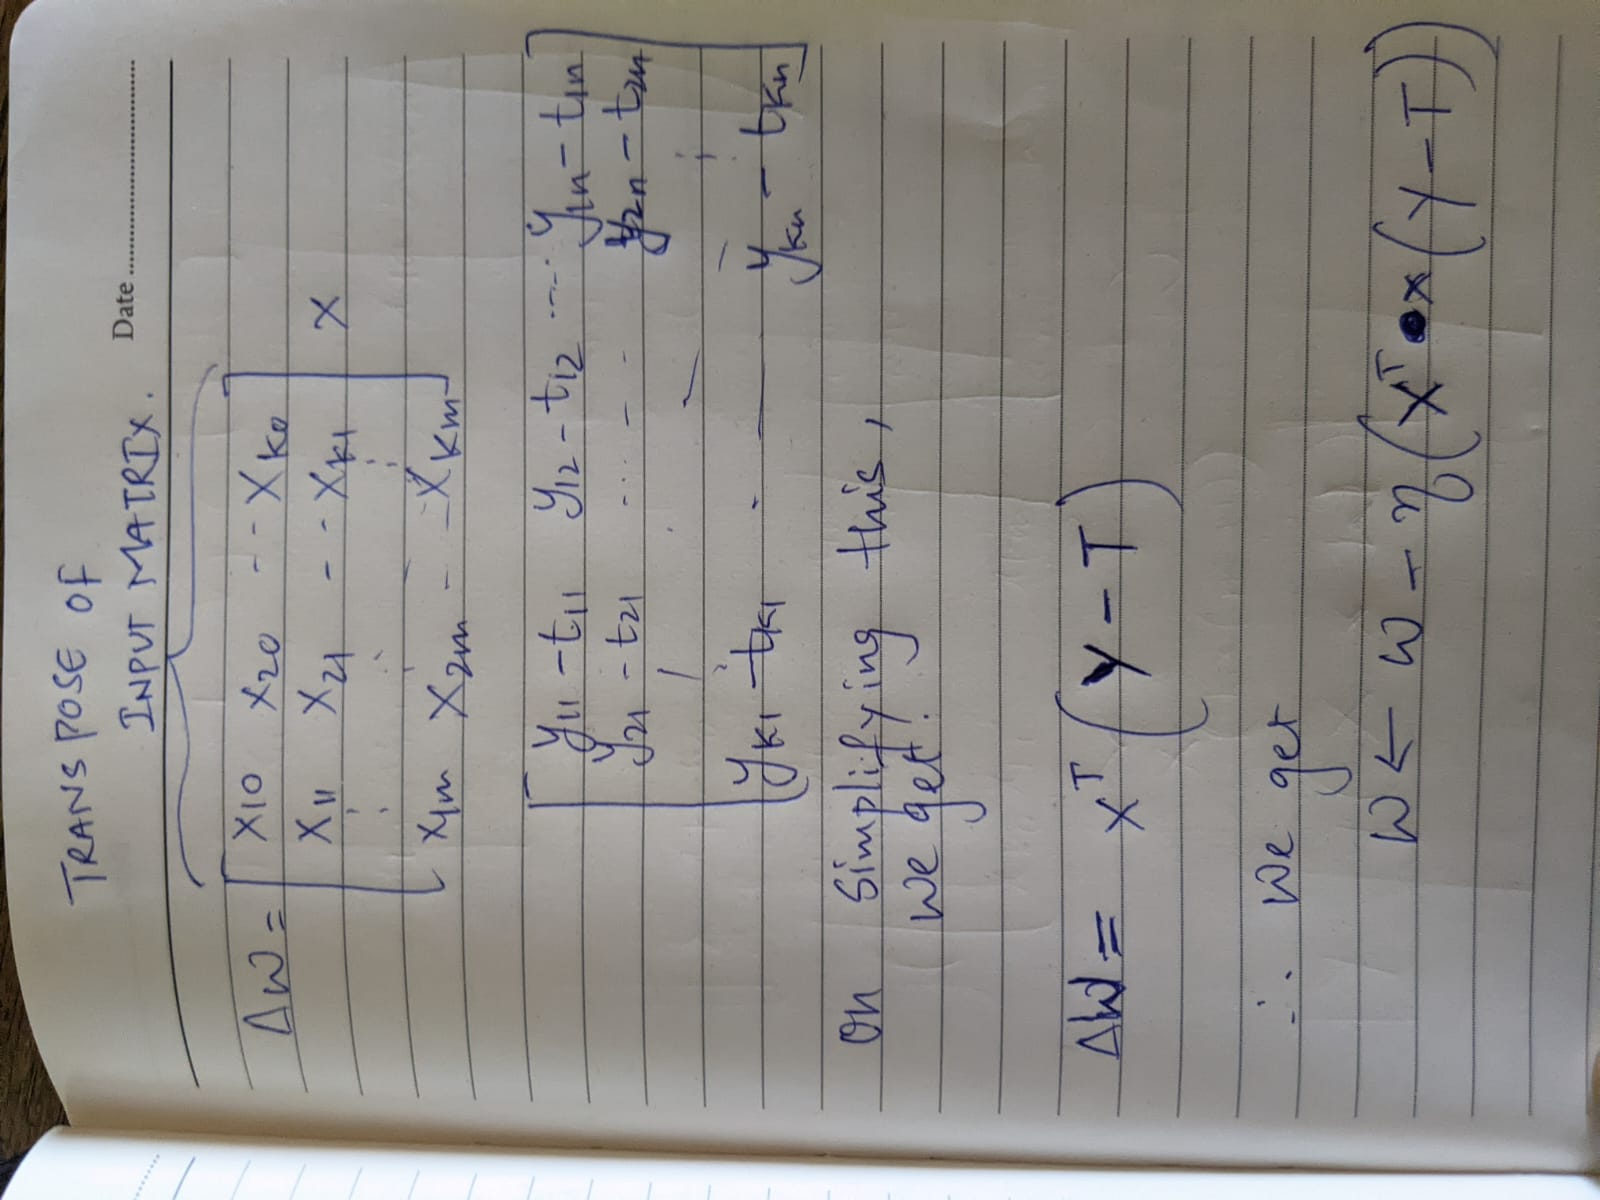 TRANSPOSE OF
INPUT MATRIX.
Date
ΔW = [ x10 x20 - - xk0
x11 x21 - - xk1 ] x
x1m x2m - - xkm
[ y11 - t11 y12 - t12 ..... y1n - t1n
y21 - t21 ..... y2n - t2n
yk1 - tk1 ykn - tkn ]
On Simplifying this,
we get.
ΔW = X^T (Y - T)
∴ we get
W ← W - η(X^T • x (Y - T))